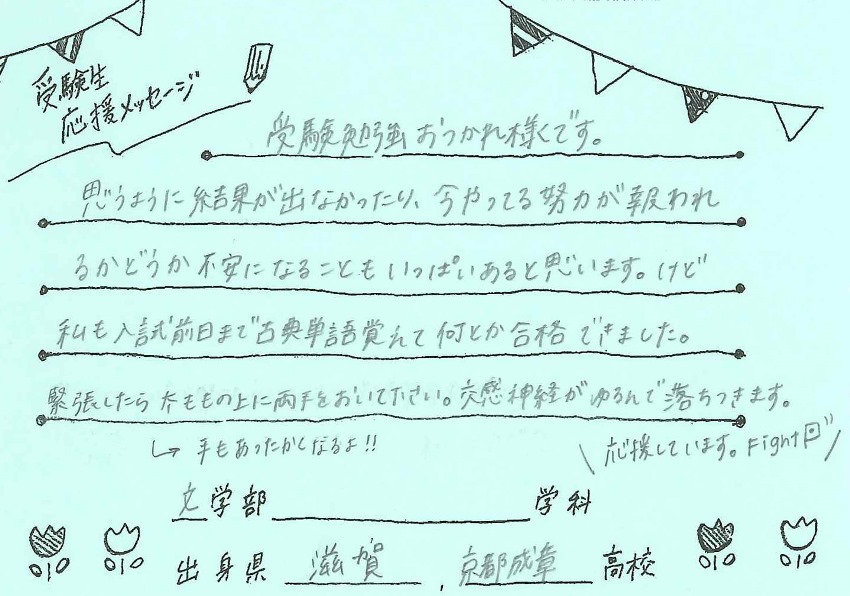 受験生
応援メッセージ
受験勉強おつかれ様です。
思うように結果が出なかったり、今やってる努力が報われ
るかどうか不安になることもいっぱいあると思います。けど
私も入試前日まで古典単語覚えて何とか合格できました。
緊張したら太ももの上に両手をおいて下さい。交感神経がゆるんで落ちつきます。
↳ 手もあったかくなるよ!!
\ 応援しています。Fight /
文学部 学科
出身県 滋賀 , 京都成章 高校